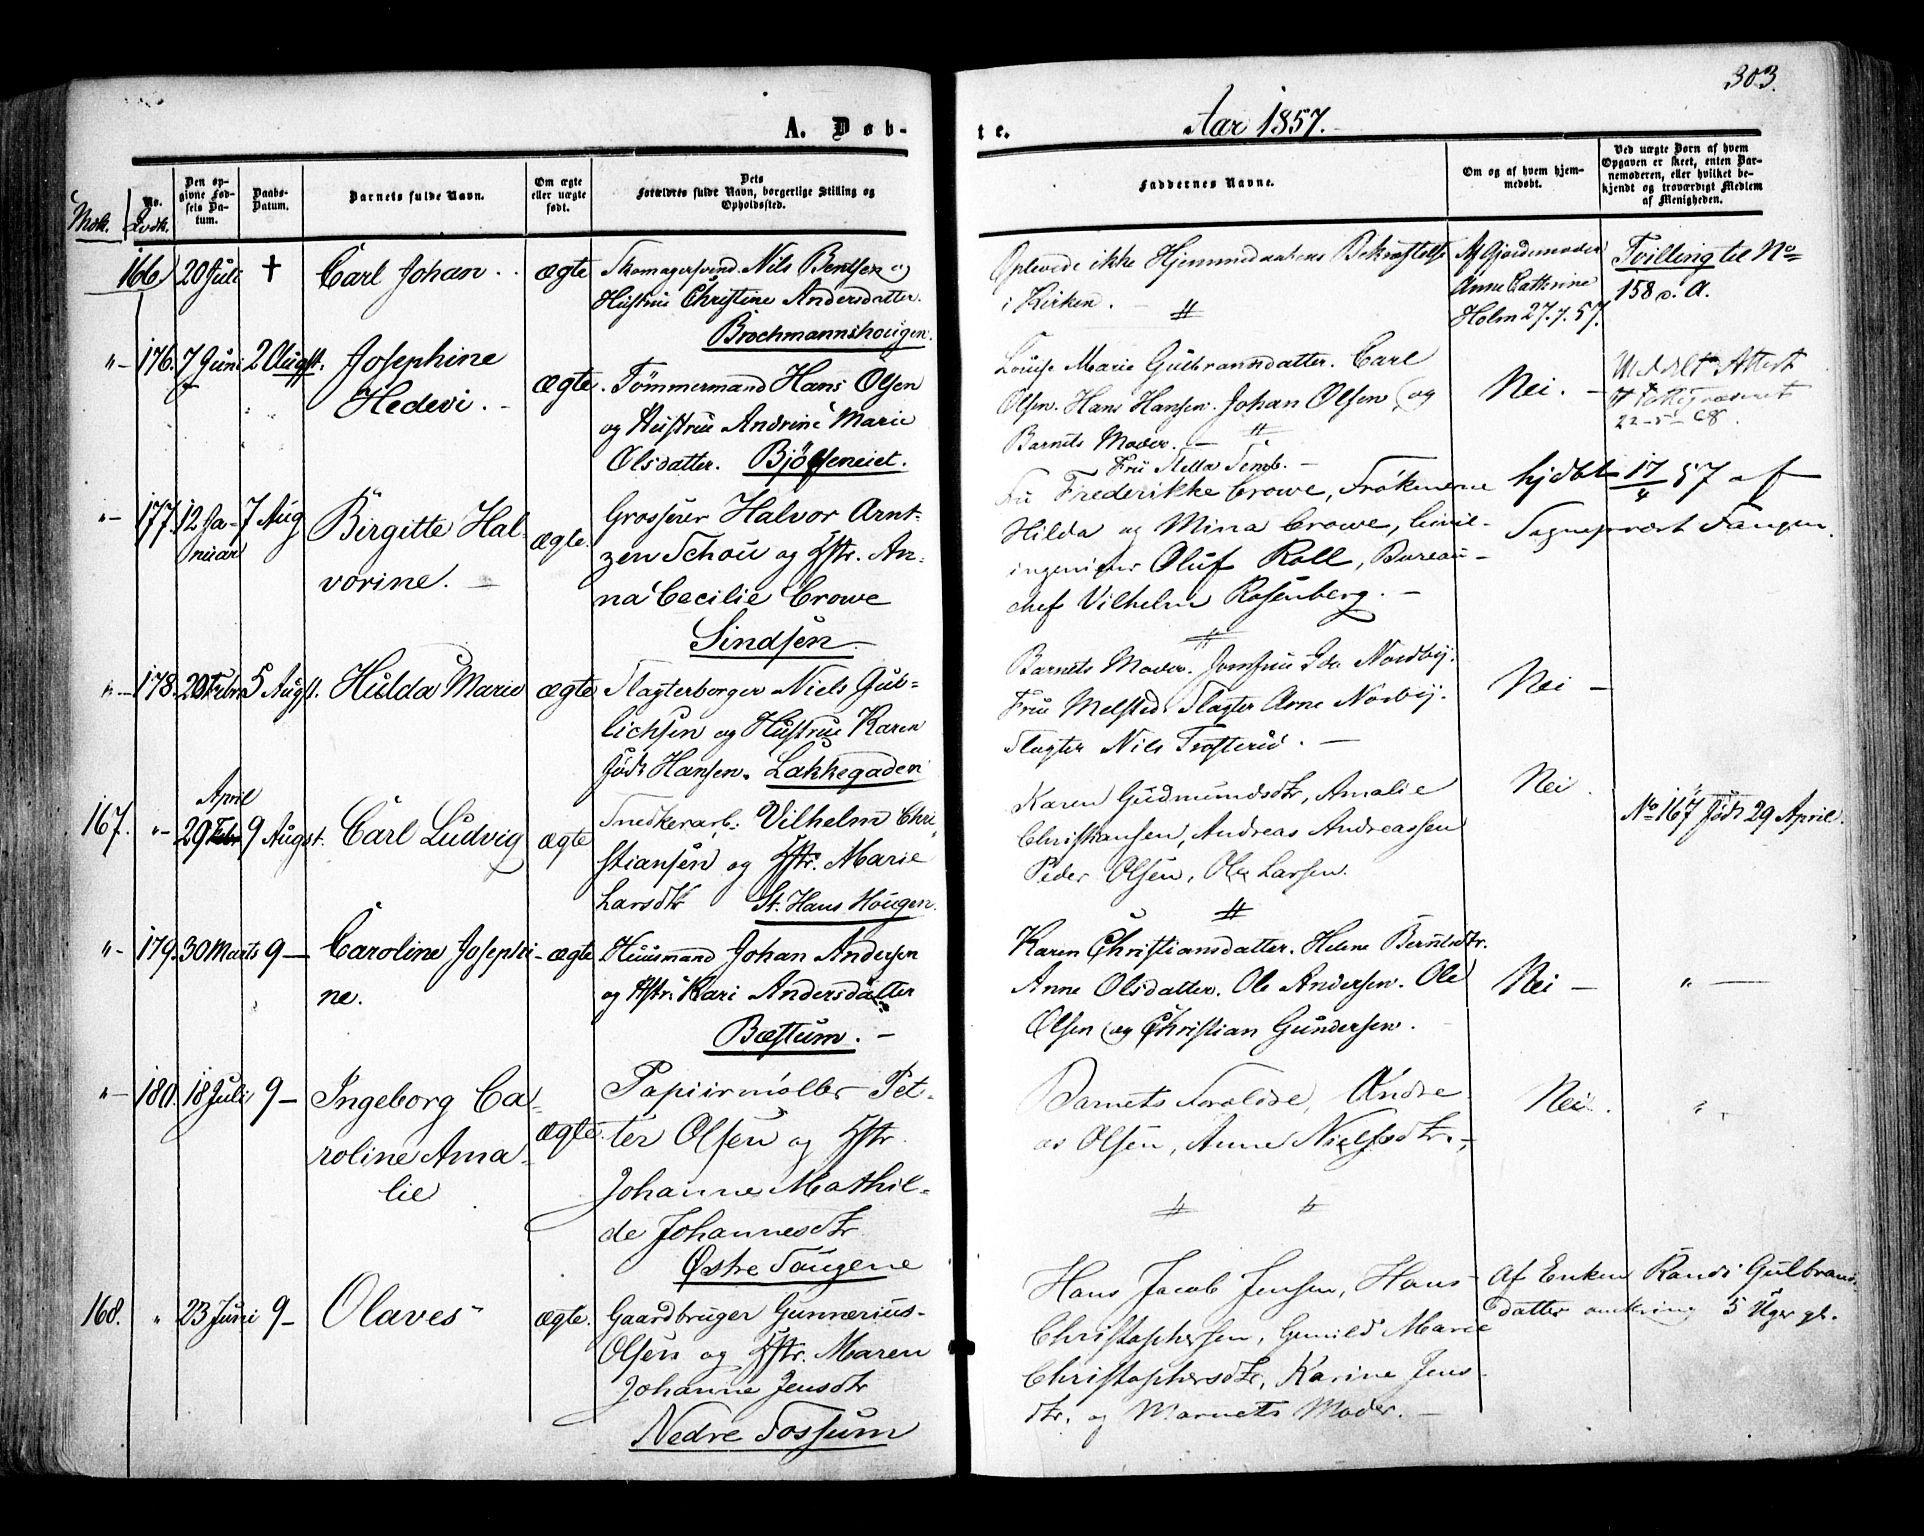 303.
A. Døb-
te. Aar 1857.
Mdk. No. Qvdk.
Den opgivne Fødsels Datum.
Daabs-Datum.
Barnets fulde Navn.
Om ægte eller uægte født.
Dets Forældres fulde Navn, borgerlige Stilling og Opholdssted.
Faddernes Navne.
Om og af hvem hjemmedøbt.
Ved uægte Børn af hvem Opgaven er skeet, enten Barnemoderen, eller hvilket bekjendt og troværdigt Medlem af Menigheden.
166 20 Juli † Carl Johan. ægte Skomagersvend Nils Bentsen og
Hustrue Christine Andersdatter.
Brochmannshougen.
Oplevede ikke Hjemmedaabens Bekræftelse
i Kirken. —
Af Gjordemoder
Anne Cathrine
Holm 27.7.57.
Tvilling til No
158 v. A.
"- 176. 7 Juni 2 August. Josephine
Hedevi. -
ægte. Tømmermand Hans Olsen
og Hustrue Andrine Marie
Olsdatter. Bjølseneiet.
Louise Marie Gulbransdatter. Carl
Olsen. Hans Hansen. Johan Olsen og
Barnets Moder. —
Nei. -
Uddelt Attest
22-5-68.
"- 177. 12 Januar 7 Aug Birgitte Hal-
vorine. —
ægte. Grosserer Halvor Arnt-
zen Schou og Hstr. An-
na Cecilie Crowe
Sindsen
Fru Stella Semb. -
Fru Frederikke Crowe, Frøknerne
Hilda og Mina Crowe, Civil-
ingeniør Oluf Roll, Bureau-
chef Vilhelm Rosenberg. -
hjdbt 17/4 57 af
Sognepræst Fangen.
"- 178. 20 Febr 5 Augst. Hulda Marie ægte Slagterborger Niels Gul-
lichsen og Hustrue Karen
født Hansen. Lakkegaden
Barnets Moder. Jomfrue Ida Nordby.
Frue Melsted. Slagter Arne Nordby.
Slagter Nils Trosterud. —
Nei -
167. "- April
29 Febr 9 Augst. Carl Ludvig ægte Snedkerarb: Vilhelm Chri-
stiansen og Hstr. Marie
Larsdtr St. Hans Hougen.
Karen Gudmundsdtr, Amalie
Christiansen, Andreas Andreassen
Peder Olsen, Ole Larsen.
Nei.
No 167 født 29 April.
"- 179. 30 Marts 9- Caroline Josephi-
ne.
ægte Huusmand Johan Andersen
og Hstr. Kari Andersdatter
Bæstum. -
Karen Christiansdatter. Helene Berntsdtr.
Anne Olsdatter. Ole Andersen. Ole
Olsen og Christian Gundersen.
Nei - " -
"- 180. 18 Juli 9- Ingeborg Ca-
roline Ama-
lie
ægte. Papiirmøller Pet-
ter Olsen og Hstr.
Johanne Mathil-
de Johannesdtr
Østre Taugene
Barnets Forældre, Andre-
as Olsen, Anne Nielsdtr. -
Nei. "
168. " 23 Juni 9- Olaves ægte. Gaardbruger Gunnerius
Olsen og Hstr. Maren
Johanne Jensdtr
Nedre Fossum
Hans Jacob Jensen, Hans
Christophersen, Gunild Marie
Christophersdtr, Karine Jens-
dtr. og Barnets Moder. -
Af Enken Randi Gulbrans-
datter omkring 5 Uger gl.